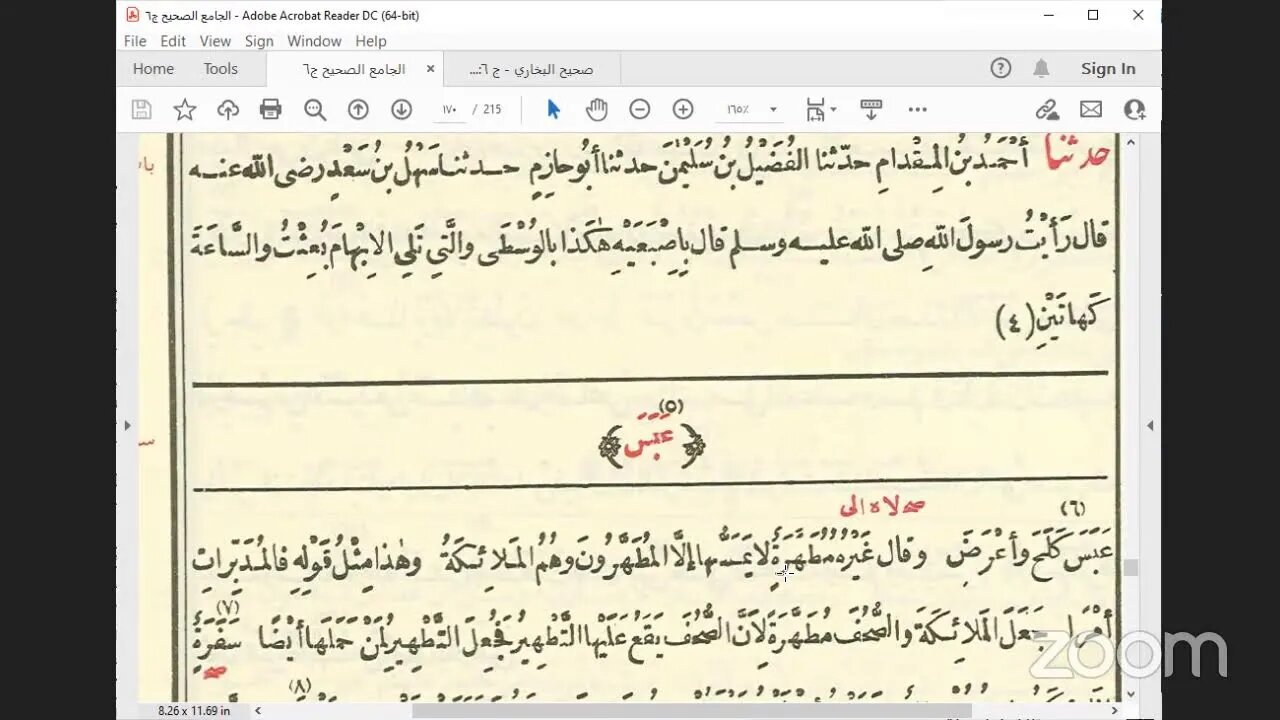 الجامع الصحيح ج٦ - Adobe Acrobat Reader DC (64-bit)
File Edit View Sign Window Help
Home Tools الجامع الصحيح ج٦ × صحيح البخاري - ج ٦:... Sign In
١٧٠ / 215 ١٦٥٪
حدثنا أَحْمَدُ بنُ المِقْدامِ حدّثنا الفُضَيْلُ بنُ سُلَيْمٰنَ حدثنا أبُو حازِمٍ حدثنا سَهْلُ بنُ سَعْدٍ رضى الله عنه
قال رَأَيْتُ رسولَ اللهِ صلى الله عليه وسلم قال بِإِصْبَعَيْهِ هٰكَذا بالوُسْطَى والَّتِي تَلِي الإِبْهامَ بُعِثْتُ والسَّاعَةَ
كَهاتَيْنِ (٤)
(٥)
﴿عَبَسَ﴾
(٦)
عَبَسَ كَلَحَ وأَعْرَضَ وقال غَيْرُهُ مُطَهَّرَةٌ لا يَمَسُّها إلَّا المُطَهَّرُونَ وهُمُ المَلائِكَةُ وهٰذا مِثْلُ قَوْلِهِ فالمُدَبِّراتِ
أَمْرًا جَعَلَ المَلائِكَةَ والصُّحُفَ مُطَهَّرَةً لِأَنَّ الصُّحُفَ يَقَعُ عَلَيْها التَّطْهِيرُ فَجُعِلَ التَّطْهِيرُ لِمَنْ حَمَلَها أَيْضًا (٧) سَفَرَةٌ
(٨)
zoom
8.26 x 11.69 in